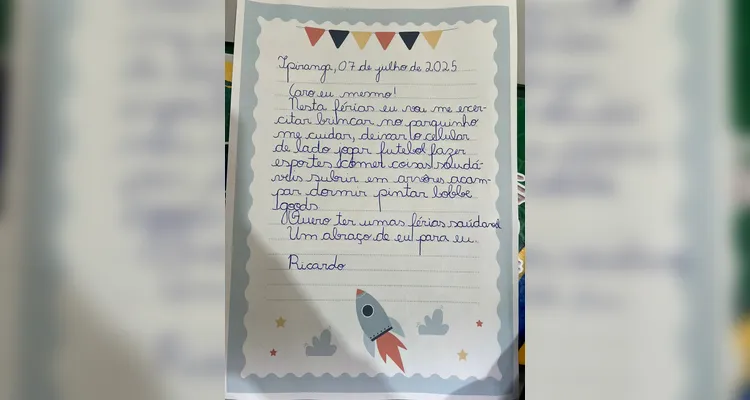 Ipiranga, 07 de julho de 2025
Caro eu mesmo!
Nesta férias eu vou me exer-
citar brincar no parquinho
me cuidar, deixar o celular
de lado jogar futebol fazer
esportes comer coisas saudá-
veis subir em arvores acam-
par dormir pintar bobbe
goods
Quero ter umas férias
Um abraço de eu para eu.
Ricardo